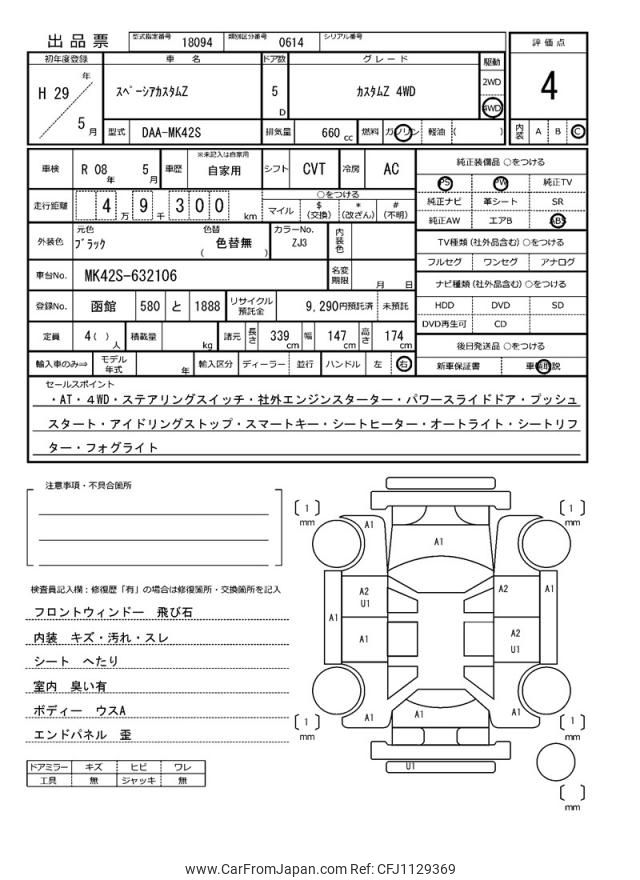 出品票
型式指定番号 18094 類別区分番号 0614 シリアル番号
評価点
4
内装 A B C
初年度登録 車名 ドア数 グレード 駆動
H 29 年 5 月
スペーシアカスタムZ
5 D
カスタムZ 4WD
2WD
4WD
型式 DAA-MK42S 排気量 660 cc 燃料 ガソリン 軽油 ( )
車検 R 08 年 5 月 車歴 ※未記入は自家用 自家用 シフト CVT 冷房 AC
走行距離 4 万 9 千 3 0 0 km
○をつける
マイル $ (交換) * (改ざん) # (不明)
外装色 元色 ブラック 色替 ( 色替無 ) カラーNo. ZJ3 内装色
車台No. MK42S-632106 名変期限 月 日
登録No. 函館 580 と 1888 リサイクル預託金 9,290円預託済 未預託
定員 4( ) 人 積載量 kg 諸元 長さ 339 cm 幅 147 cm 高さ 174 cm
輸入車のみ⇒ モデル年式 年 輸入区分 ディーラー 並行 ハンドル 左 右
純正装備品 ○をつける
PS PW 純正TV
純正ナビ 革シート SR
純正AW エアB ABS
TV種類 (社外品含む) ○をつける
フルセグ ワンセグ アナログ
ナビ種類 (社外品含む) ○をつける
HDD DVD SD
DVD再生可 CD
後日発送品 ○をつける
新車保証書 車輌取説
セールスポイント
・AT・4WD・ステアリングスイッチ・社外エンジンスターター・パワースライドドア・プッシュ
スタート・アイドリングストップ・スマートキー・シートヒーター・オートライト・シートリフ
ター・フォグライト
注意事項・不具合箇所
検査員記入欄：修復歴「有」の場合は修復箇所・交換箇所を記入
フロントウィンドー 飛び石
内装 キズ・汚れ・スレ
シート へたり
室内 臭い有
ボディー ウスA
エンドパネル 歪
ドアミラー キズ ヒビ ワレ
工具 無 ジャッキ 無
[ 1 ] mm
A1
[ 1 ] mm
A1
A2
U1
A2
A1
A1
A1
A2
U1
[ 1 ] mm
A1
A1
A1
[ 1 ] mm
U1
[ ] mm
www.CarFromJapan.com Ref: CFJ1129369